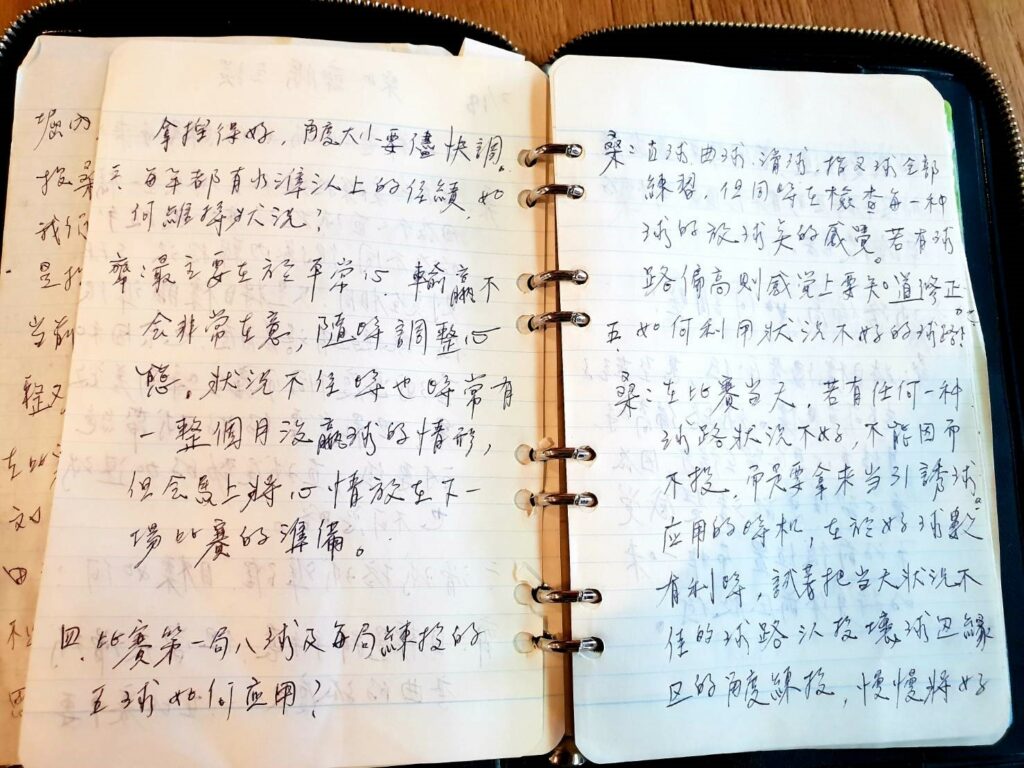 拿捏得好,角度大小要儘快調。
三、每年都有水準以上的佳績,如
何維持狀況?
桑:最主要在於平常心,輸贏不
會非常在意,隨時調整心
態。狀況不佳時也時常有
一整個月沒贏球的情形,
但會馬上將心情放在下一
場比賽的準備。
四、比賽第一局八球及每局練投的
五球如何应用?
桑:直球、曲球、滑球、指叉球全部
練習,但同時在檢查每一種
球的放球矣的感覺。若有球
路偏高則感覚上要知道修正
五、如何利用狀況不好的球路?
桑:在比賽当天,若有任何一种
球路狀況不好,不能因而
不投,而是要拿来当引誘球。
应用的時机,在於好球數
有利時,試著把当天狀況不
佳的球路以投壞球边緣
区的角度練投,慢慢將好
堀內
投
我們
是投
当前
整又
在比
刘
由